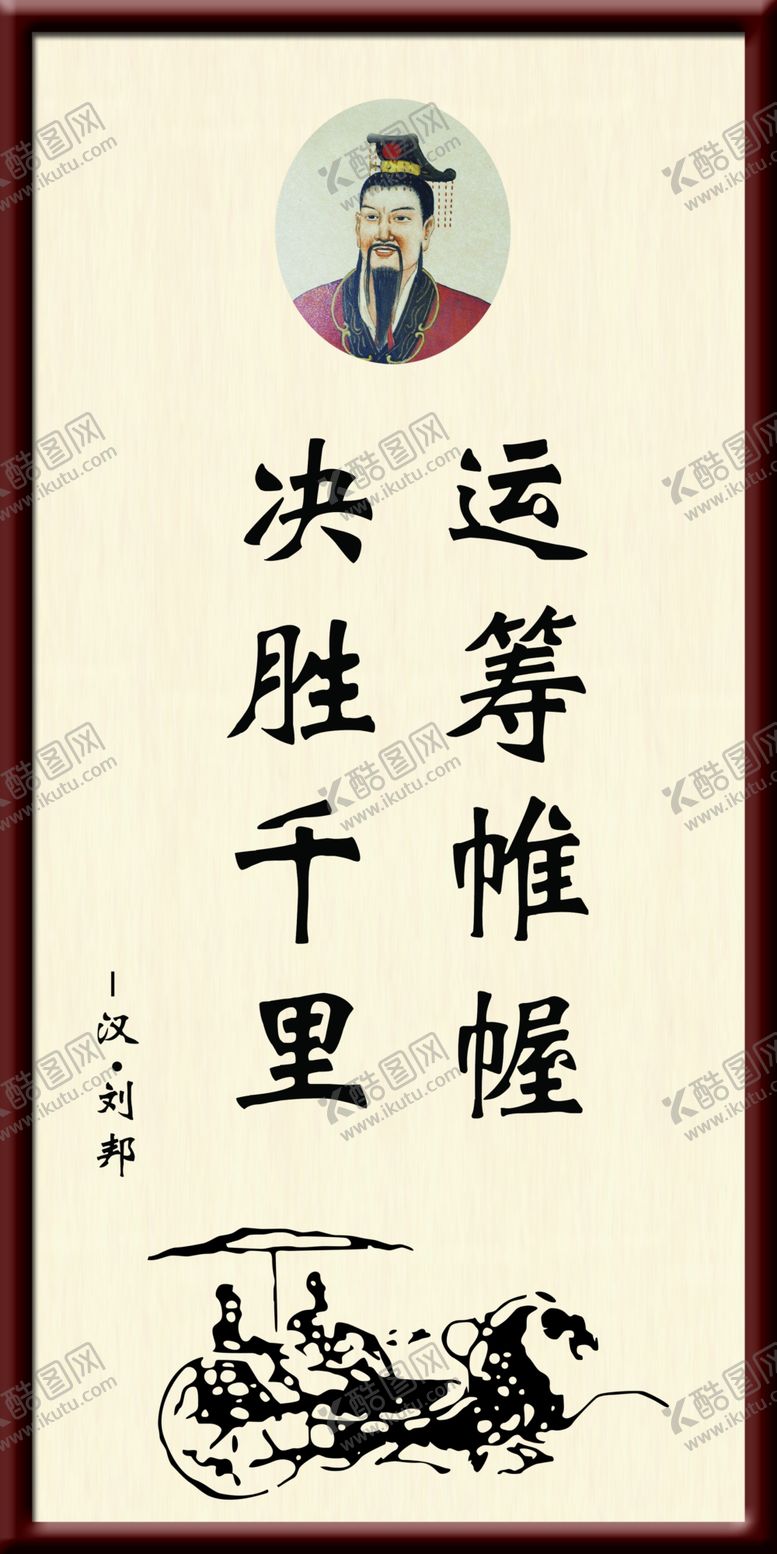 运筹帷幄
决胜千里
—汉·刘邦
酷图网
www.ikutu.com